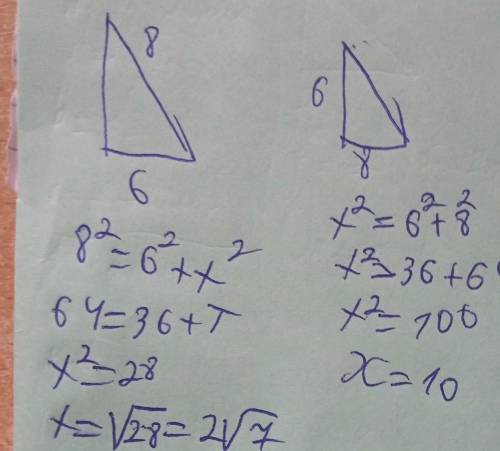 8
6
8² = 6² + x²
64 = 36 + T
x² = 28
x = √28 = 2√7
6
8
x² = 6² + 8²
x² = 36 + 64
x² = 100
x = 10